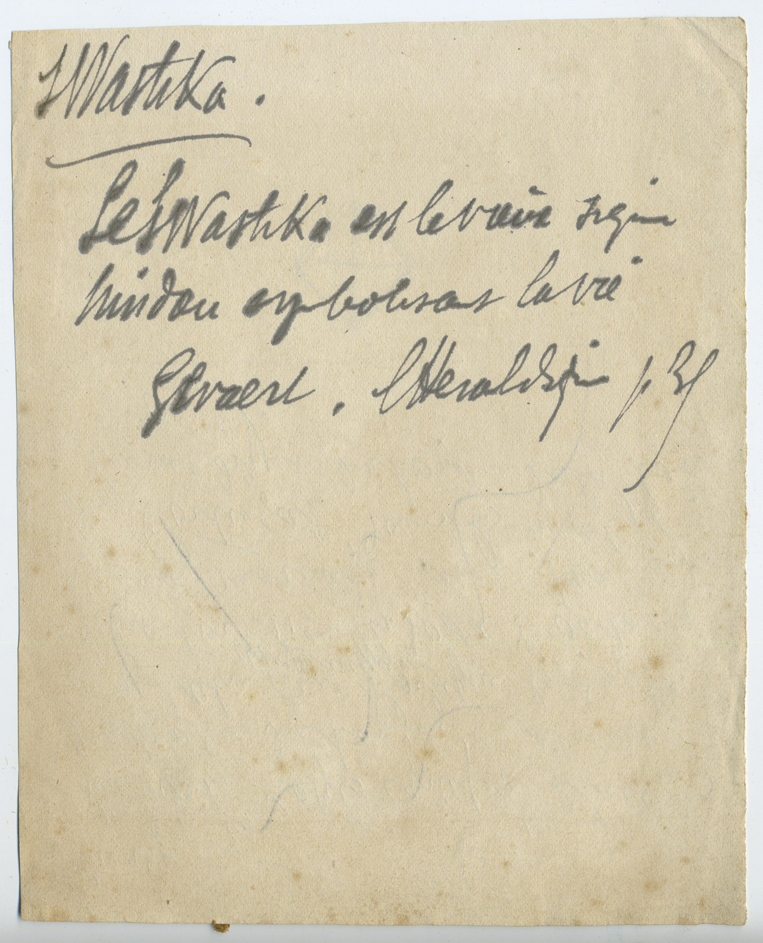 SWastika.
Le SWastika est le vieux signe
hindou symbolisant la vie
Gevaert. l'Heraldique p.